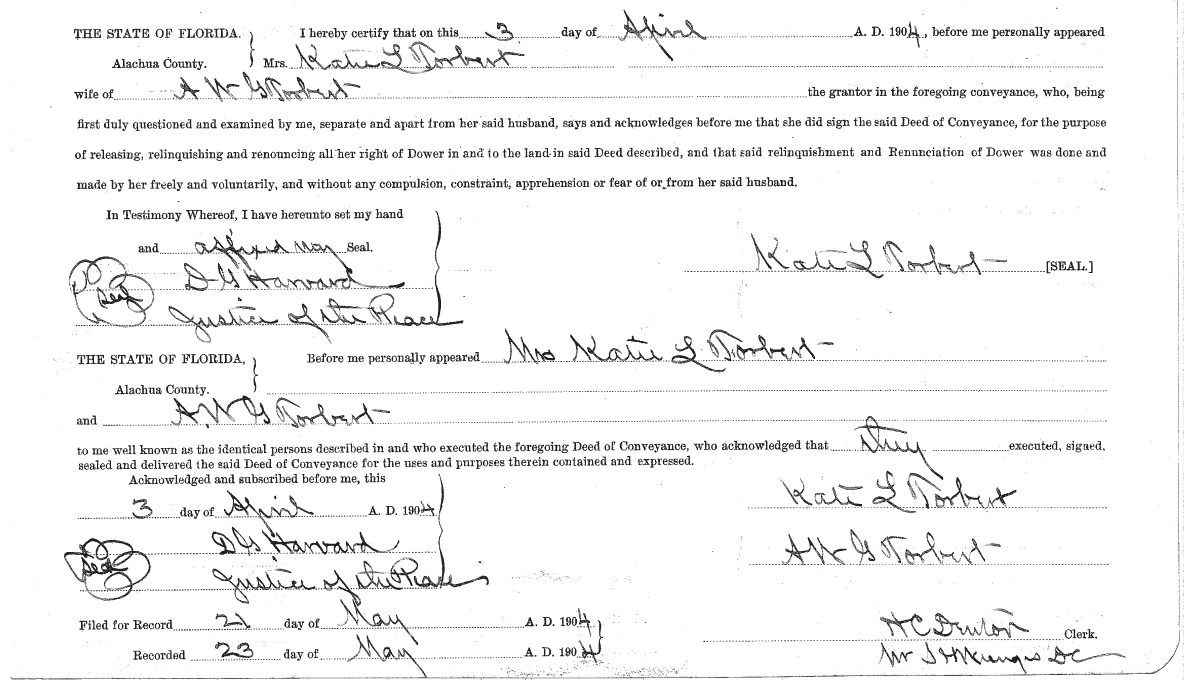 THE STATE OF FLORIDA. I hereby certify that on this 3 day of April A. D. 1904, before me personally appeared
Alachua County. Mrs. Katie L Torbert
wife of A W G Torbert the grantor in the foregoing conveyance, who, being
first duly questioned and examined by me, separate and apart from her said husband, says and acknowledges before me that she did sign the said Deed of Conveyance, for the purpose
of releasing, relinquishing and renouncing all her right of Dower in and to the land in said Deed described, and that said relinquishment and Renunciation of Dower was done and
made by her freely and voluntarily, and without any compulsion, constraint, apprehension or fear of or from her said husband.
In Testimony Whereof, I have hereunto set my hand
and affixed my Seal.
Kate L Torbert [SEAL.]
Seal D G Harvard
Justice of the Peace
THE STATE OF FLORIDA, Before me personally appeared Mrs Katie L Torbert
Alachua County.
and A. W G Torbert
to me well known as the identical persons described in and who executed the foregoing Deed of Conveyance, who acknowledged that they executed, signed,
sealed and delivered the said Deed of Conveyance for the uses and purposes therein contained and expressed.
Acknowledged and subscribed before me, this
3 day of April A. D. 1904
Kate L Torbert
Seal D G Harvard
A W G Torbert
Justice of the Peace
Filed for Record 21 day of May A. D. 1904
H C Denton Clerk.
Recorded 23 day of May A. D. 1904
DC